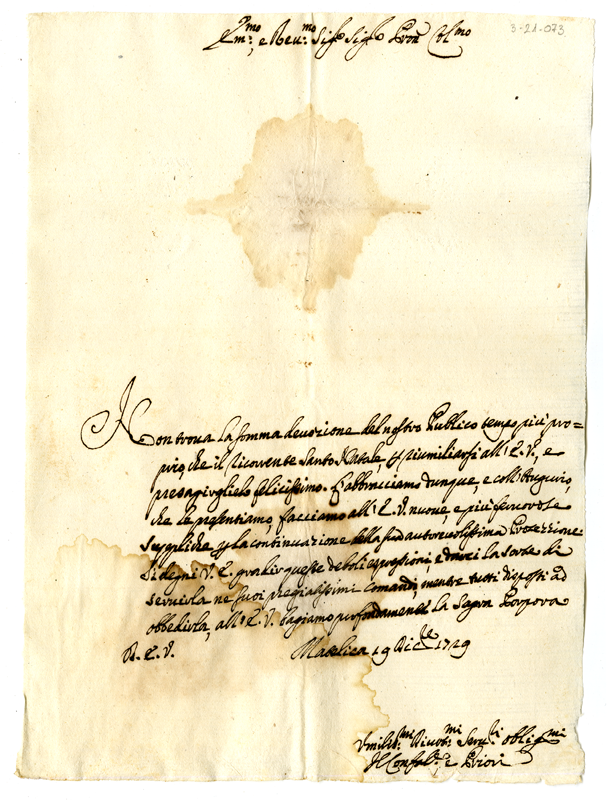 3-21-073
Em:mo, e Reu:mo Sig.r Sig.r Pron Col:mo
Non troua la somma deuozione del nostro Publico tempo più pro=
prio, che il ricorrente Santo Natale, p riumiliarsi all' E.V., e
presagirglielo felicissimo. L'abbracciamo dunque, e coll' Augurio,
che le presentiamo, facciamo all' E.V. nuoue, e più feruorose
suppliche p la continuazione della sua autoreuolissima Protezzione
Si degni V.E. gradir queste deboli espressioni, e darci la sorte di
seruirla ne suoi pregiatissimi comandi, mentre tutti disposti ad
obbedirla, all' E.V. bagiamo profondamente la Sagra Porpora
D. E.V. Matelica 19 Dic.re 1719
Vmiliss:mi Diuot:mi Seru:ri oblig:mi
Il Confal:re e Priori